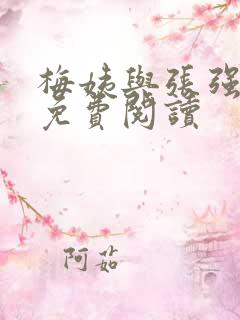 梅姨與张强
免費閱讀
阿茹